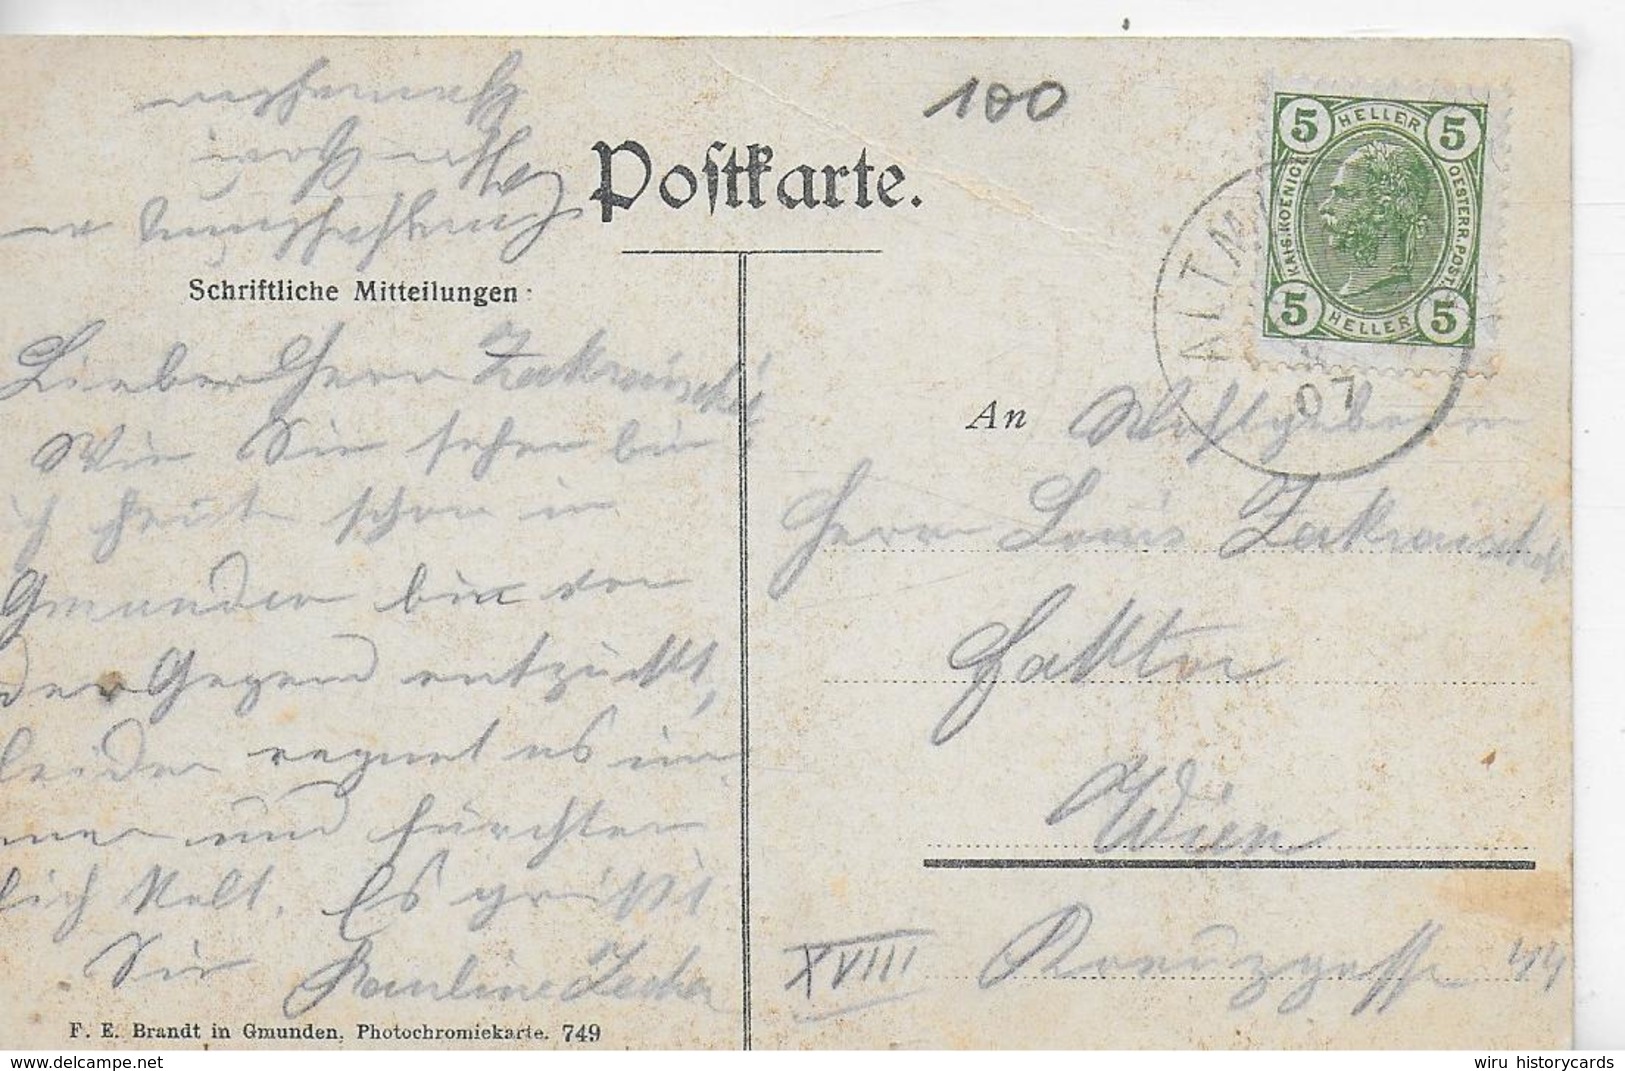 100
Postkarte.
5 HELLER 5
KAIS. KOENIGL. OESTERR. POST.
5 HELLER 5
ALTM
07
Schriftliche Mitteilungen:
Lieber Herr Zakrawischek!
Wie Sie sehen bin
ich heute schon in
Gmunden bin von
der Gegend entzückt,
leider regnet es im
mer und fürchter
lich kalt. Es grüßt
Sie Pauline
An Wohlgeboren
Herrn Louis Zakrawischek
Faktor
Wien
XVIII Kreuzgasse 44
F. E. Brandt in Gmunden, Photochromiekarte. 749
wiru historycards